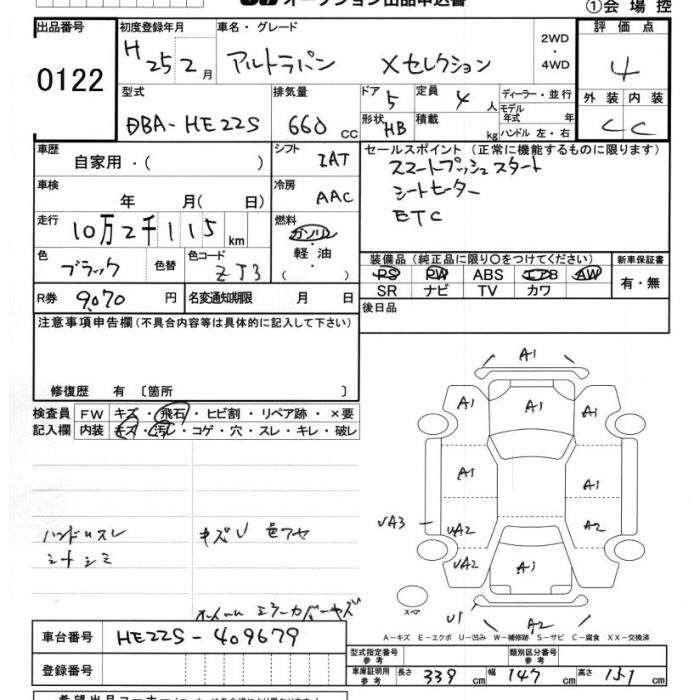 オークション出品申込書
①会場控
出品番号 0122
初度登録年月 H 25 2月
車名・グレード アルトラパン Xセレクション
2WD・4WD
評価点 4
外装 内装
C C
型式 DBA-HE22S
排気量 660 CC
ドア 5
定員 4人
形状 HB
積載 kg
ディーラー・並行
モデル年式 年
ハンドル 左・右
車歴 自家用・( )
シフト IAT
セールスポイント (正常に機能するものに限ります)
スマートプッシュスタート
シートヒーター
ETC
車検 年 月( 日)
冷房 AAC
走行 10万2千115 km
燃料 ガソリン・軽油・( )
色 ブラック 色替
色コード ZJ3
装備品 (純正品に限り○をつけてください)
PS PW ABS エアB AW
SR ナビ TV カワ
新車保証書 有・無
R券 9,070 円
名変通知期限 月 日
後日品
注意事項申告欄 (不具合内容等は具体的に記入して下さい)
修復歴 有 〔箇所 〕
検査員記入欄
FW キズ・飛石・ヒビ割・リペア跡・×要
内装 キズ・汚レ・コゲ・穴・スレ・キレ・破レ
ハンドルスレ
シートシミ
キズU 色アセ
ホイール ミラーカバーキズ
A1
A1 A1 A1
A1 A1
UA3 UA2 A2
UA2 A1
スペア
U1 A2
A-キズ E-エクボ U-凹み W-補修跡 S-サビ C-腐食 XX-交換済
車台番号 HE22S-409679
登録番号
型式指定番号 参考
類別区分番号 参考
車庫証明用 参考 長さ 339 cm 幅 147 cm 高さ 151 cm